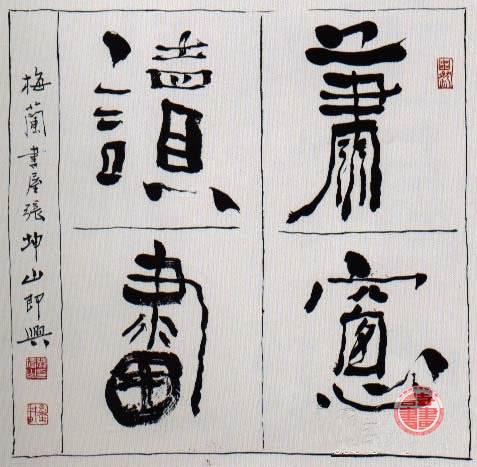 蕭窻
讀畫
梅蘭書屋張坤山即興